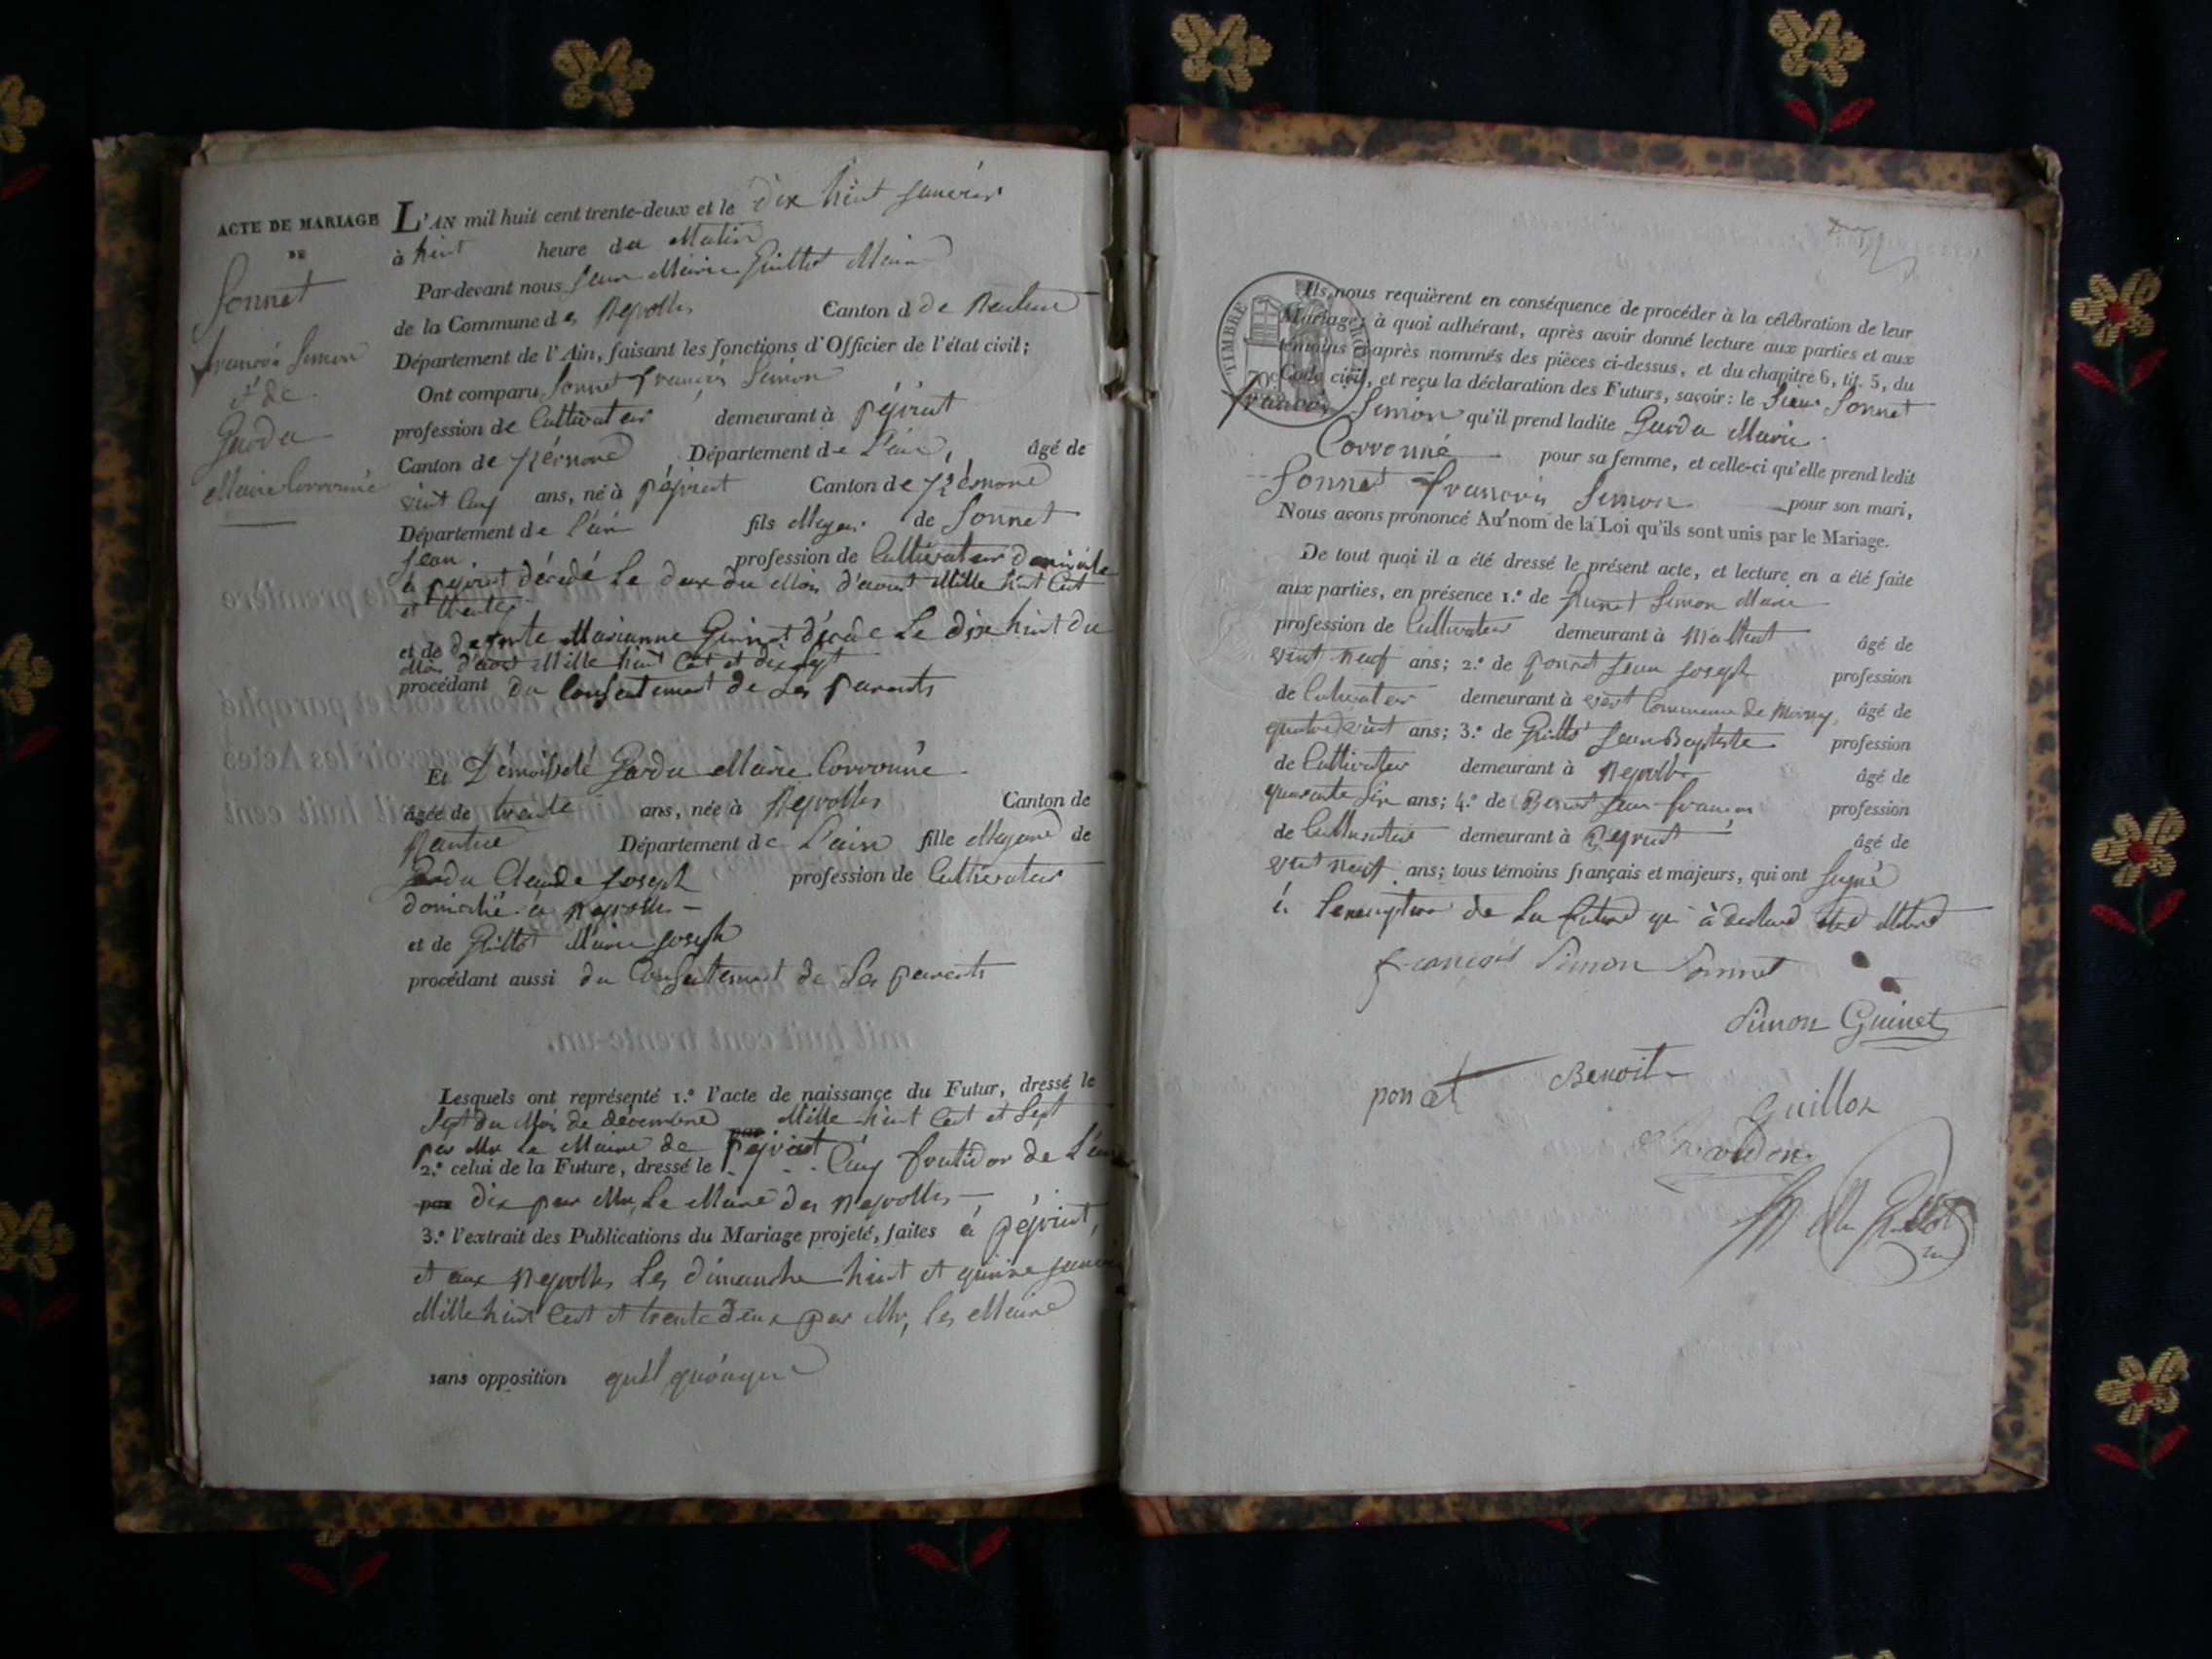 ACTE DE MARIAGE
DE
Sonnet
François Simon
& de
Garda
Marie Corronné
L'AN mil huit cent trente-deux et le dix huit janvier
à huit heure du Matin
Par-devant nous Jean Marie Guillot Maire
de la Commune des Neyrolles Canton d de Nantua
Département de l'Ain, faisant les fonctions d'Officier de l'état civil;
Ont comparu Sonnet François Simon
profession de Cultivateur demeurant à peyriat
Canton de Département de L'ain, âgé de
vint Cinq ans, né à péyriat Canton de
Département de l'ain fils Majeur de Sonnet
Jean profession de Cultivateur domicilié
à peyriat décédé le deux du Mois d'aoust Mille huit Cent
et trente
et de defunte Marianne Guinet décédé le dix huit du
Mois d'aost Mille huit Cent et dix Sept
procédant du Consentement de Ses parents
Et Démoiselle Garda Marie Corronne
âgée de trente ans, née à Neyrolles Canton de
Nantua Département de L'ain fille Majeure de
Garda Claude Joseph profession de Cultivateur
domicilié à Neyrolles
et de Guillot Marie Joseph
procédant aussi du Consentement de Ses parents
Lesquels ont représenté 1.º l'acte de naissance du Futur, dressé le
Sept du Mois de décembre Mille huit Cent et Sept
par Mr Le Maire de Péyriat
2.º celui de la Future, dressé le Cinq frutidor de L'an
par dix par Mr, Le Maire des Neyrolles
3.º l'extrait des Publications du Mariage projeté, faites à péyriat,
et aux Neyrolles Les dimanche huit et quinze janvier
Mille huit Cent et trente deux par Mr, les Maire
sans opposition quél quonque
TIMBRE
70c
Ils nous requièrent en conséquence de procéder à la célébration de leur
Mariage; à quoi adhérant, après avoir donné lecture aux parties et aux
témoins ci-après nommés des pièces ci-dessus, et du chapitre 6, tit. 5, du
Code civil, et reçu la déclaration des Futurs, savoir: le Sieur Sonnet
françois Simon qu'il prend ladite Garda Marie
Corronné pour sa femme, et celle-ci qu'elle prend ledit
Sonnet françois Simon pour son mari,
Nous avons prononcé Au nom de la Loi qu'ils sont unis par le Mariage.
De tout quoi il a été dressé le présent acte, et lecture en a été faite
aux parties, en présence 1.º de Guinet Simon Marie
profession de Cultivateur demeurant à âgé de
vint neuf ans; 2.º de poncet Jean Joseph profession
de Cultivateur demeurant à Commune de âgé de
quatre vint ans; 3.º de Guillot Jean Baptiste profession
de Cultivateur demeurant à Neyrolles âgé de
quarante Six ans; 4.º de Benoit Jean françois profession
de Cultivateur demeurant à Peyriat âgé de
vint neuf ans; tous témoins français et majeurs, qui ont Signé
à L'exception de La future qui à declaré
françois Simon Sonnet
Simon Guinet
poncet Benoit
Guillot